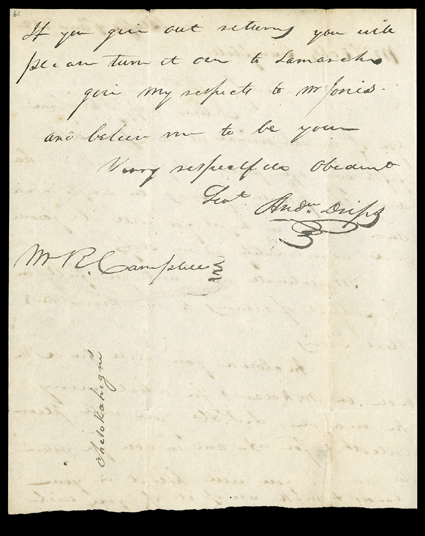 If you give out returns you will
please turn it over to Lamarch
give my respects to Mr Jones.
and believe me to be your
Verry respectful obedient
Servt. Andw. Drips
Mr R. Campbell